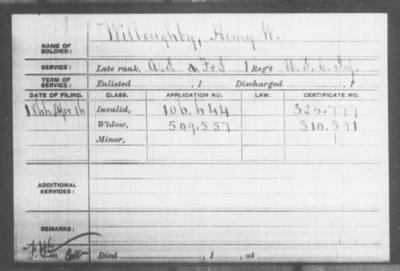 NAME OF SOLDIER: Willoughby, Henry W.
SERVICE: Late rank, A.S. & F&S 1 Reg't U.S.C. Inf.
TERM OF SERVICE: Enlisted , 1 Discharged , 1
DATE OF FILING. CLASS. APPLICATION NO. LAW. CERTIFICATE NO.
1866 Apr 16 Invalid, 106.644 326.777
Widow, 509.557 310.591
Minor,
ADDITIONAL SERVICES:
REMARKS:
Died , 1 , at